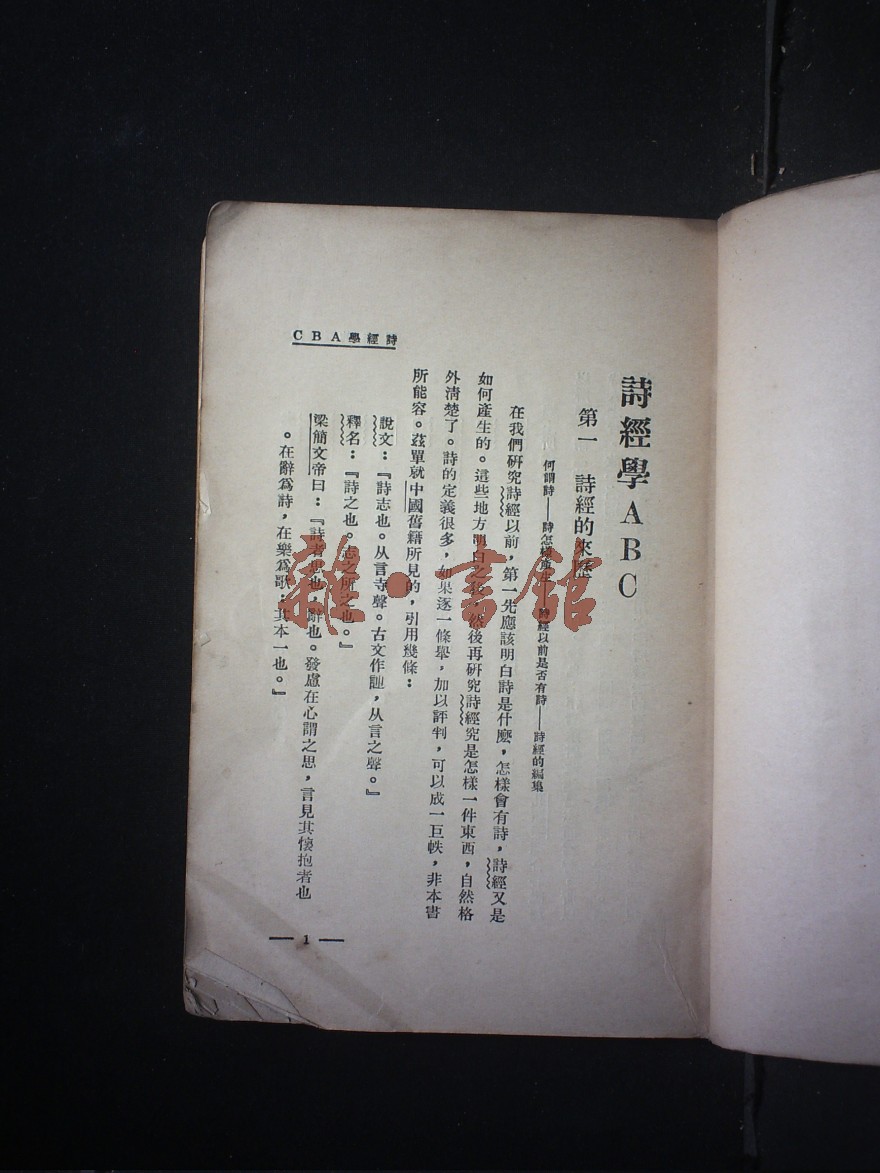 詩經學ABC
第一　詩經的來歷
何謂詩——詩怎樣產生——詩經以前是否有詩——詩經的編集
在我們研究詩經以前，第一先應該明白詩是什麼，怎樣會有詩，詩經又是
如何產生的。這些地方明白之後，然後再研究詩經究是怎樣一件東西，自然格
外清楚了。詩的定義很多，如果逐一條舉，加以評判，可以成一巨帙，非本書
所能容。茲單就中國舊籍所見的，引用幾條：
說文：『詩志也。从言寺聲。古文作訨，从言之聲。』
釋名：『詩之也。志之所之也。』
梁簡文帝曰：『詩者思也，辭也。發慮在心謂之思，言見其懷抱者也
。在辭爲詩，在樂爲歌，其本一也。』
CBA學經詩
— 1 —
雜·書館